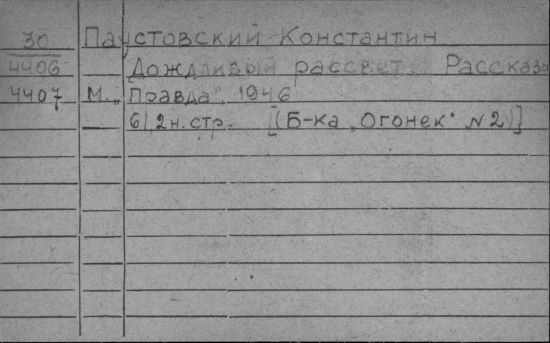 30 Паустовский Константин
4406 Дождливый рассвет. Рассказы
4407 М., „Правда", 1946
61,2н.стр. [(Б-ка „Огонек" N2)]